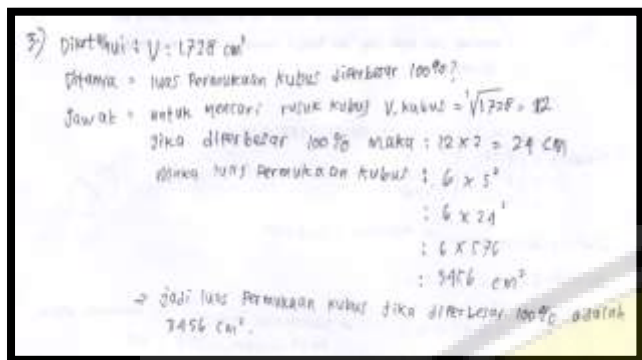 3.) Diketahui : V = 1.728 cm³
Ditanya = luas permukaan kubus diperbesar 100%?
Jawab = untuk mencari rusuk kubus V. kubus = ³√1.728 = 12
jika diperbesar 100% maka : 12 x 2 = 24 cm
Maka luas permukaan kubus : 6 x s²
: 6 x 24²
: 6 x 576
: 3456 cm²
⇒ jadi luas permukaan kubus jika diperbesar 100% adalah
3456 cm².